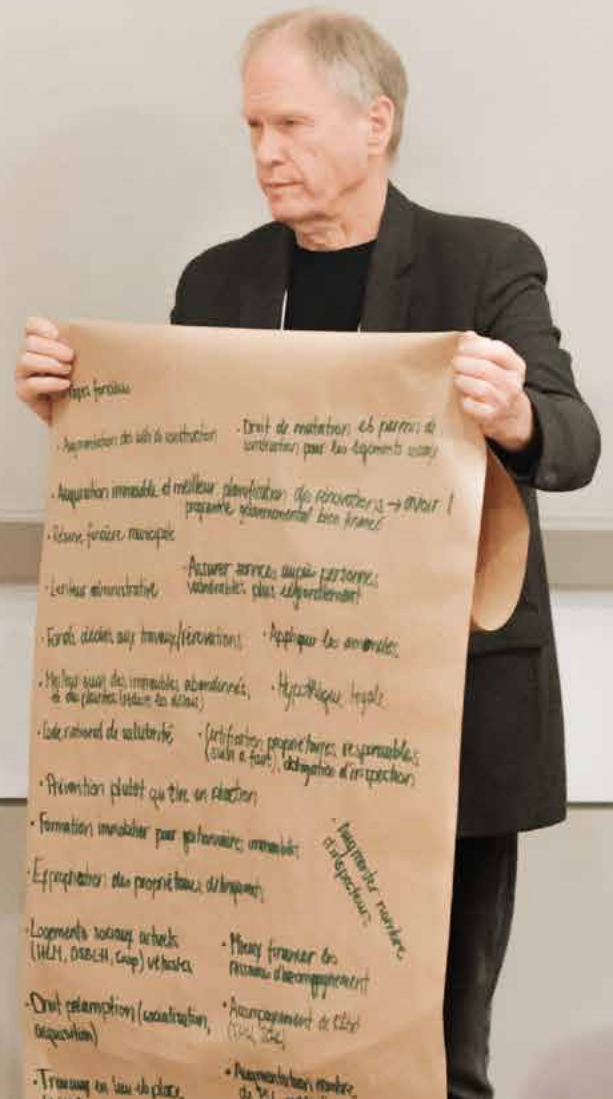 • Augmentation des coûts de construction
• Droit de mutation et permis de
construction pour les logements
• Acquisition immeuble et meilleur planification des rénovations → avoir 1
programme gouvernemental bien financé
• Réserve foncière municipale
• Lenteur administrative
• Assurer services auprès personnes
vulnérables plus
• Fonds dédiés aux travaux/rénovations
• Appliquer les amendes
• suivi des immeubles abandonnés,
et des plaintes (réduire les délais)
• Hypothèque légale
• Code national de salubrité
• Certification propriétaires responsables
d'inspection
• Prévention plutôt qu'être en réaction
• Formation immobilier pour gestionnaires immeubles
• Augmenter nombre
d'inspecteurs
• Expropriation des propriétaires délinquants
• Logements sociaux actuels
(HLM, OSBLH, Coop) vétustes
• Mieux financer les
d'accompagnement
• Droit préemption (
acquisition)
• Accompagnement de
• en lieu
• Augmentation nombre